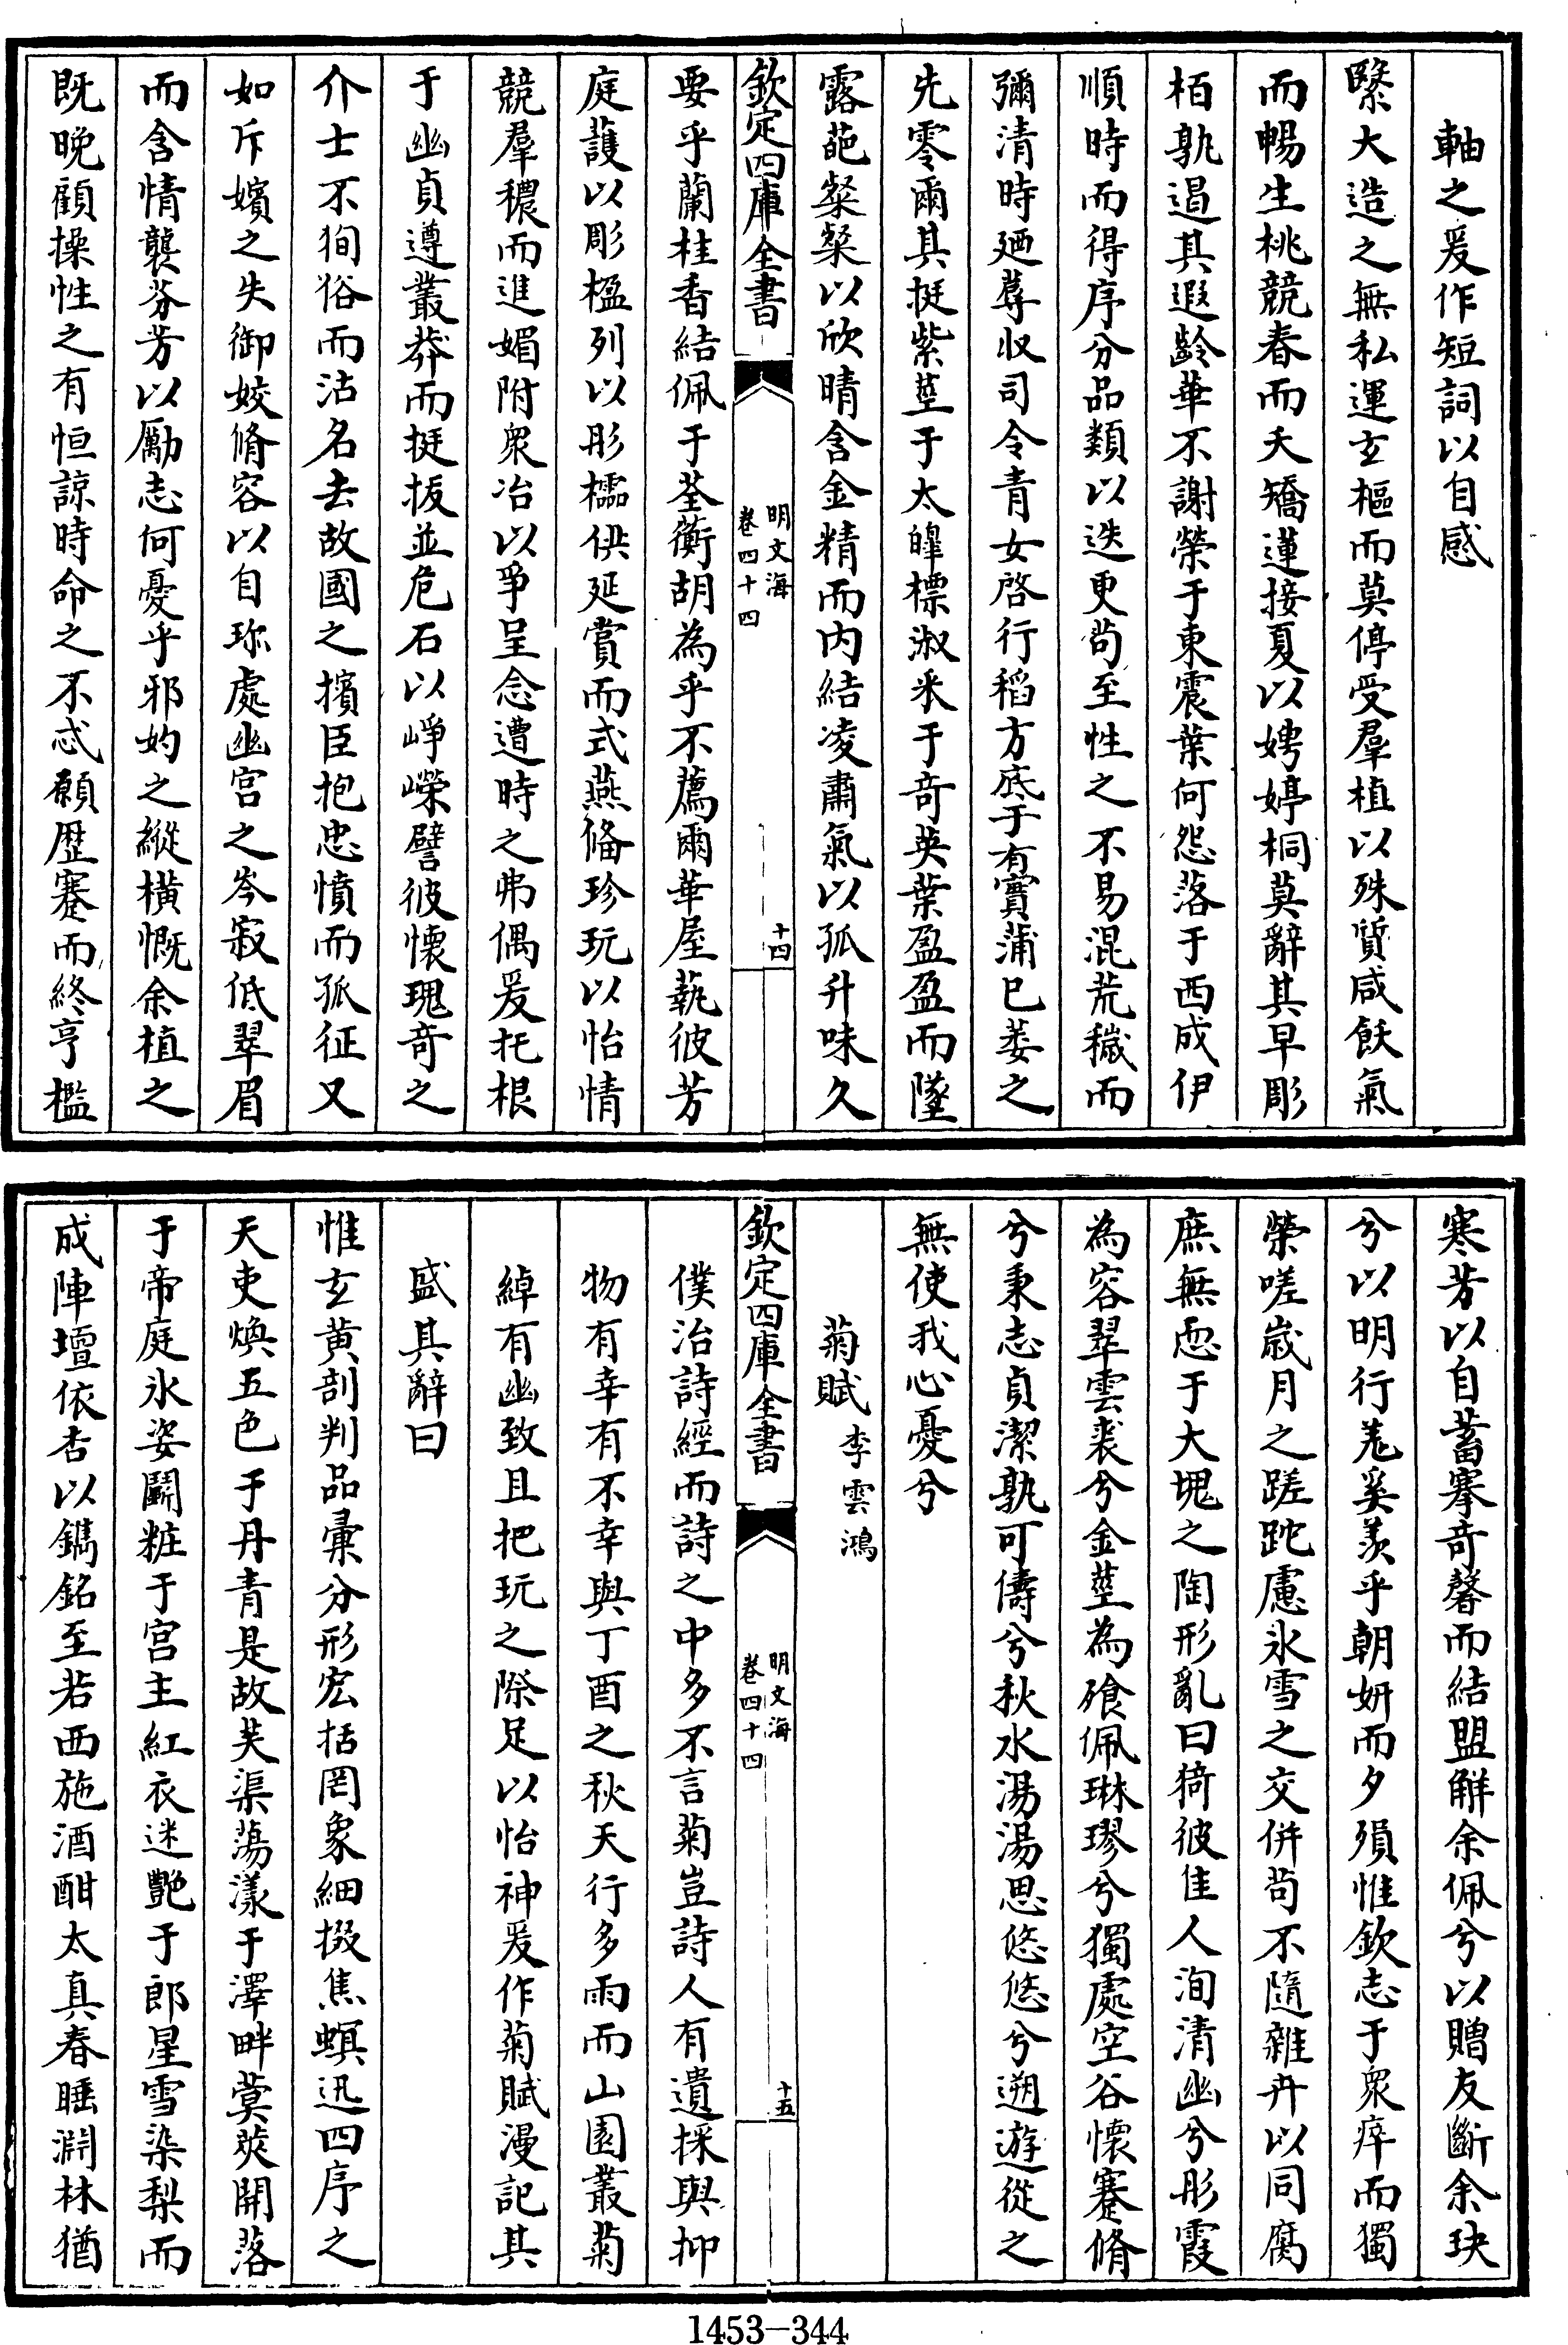 軸之爰作短詞以自感
繄大造之無私運玄樞而莫停受羣植以殊質咸飫氣
而暢生桃競春而夭矯蓮接夏以娉婷桐莫辭其早彫
栢孰遏其遐齡華不謝榮于東震葉何怨落于西成伊
順時而得序分品類以迭更茍至性之不易混荒穢而
彌清時廼蓐收司令青女啓行稻方底于有實蒲已萎之
先零爾其挺紫莖于太皥標淑采于竒英葉盈盈而墜
露葩粲粲以欣晴含金精而内結凌肅氣以孤升味久
欽定四庫全書
明文海
卷四十四
十四
要乎蘭桂香結佩于荃蘅胡為乎不薦爾華屋蓺彼芳
庭䕶以彫楹列以彤櫺供延賞而式燕脩珍玩以怡情
競羣穠而進媚附衆冶以爭呈念遭時之弗偶爰托根
于幽貞遵叢莽而挺拔並危石以崢嶸譬彼懷瑰竒之
介士不狥俗而沽名去故國之擯臣抱忠憤而孤征又
如斥嬪之失御姣脩容以自珎處幽宫之岑寂低翠眉
而含情襲芬芳以勵志何憂乎邪妁之縱横慨余植之
既晚顧操性之有恒諒時命之不忒願歴蹇而終亨檻
寒芳以自蓄搴竒馨而結盟觧余佩兮以贈友斷余玦
兮以明行羗奚羨乎朝妍而夕殞惟欽志于衆瘁而獨
榮嗟嵗月之蹉跎慮氷雪之交併茍不隨雜卉以同腐
庶無恧于大塊之陶形亂曰猗彼佳人洵清幽兮彤霞
為容翠雲裘兮金莖為飱佩琳璆兮獨處空谷懷蹇脩
兮秉志貞潔孰可儔兮秋水湯湯思悠悠兮遡遊從之
無使我心憂兮
菊賦 李雲鴻
欽定四庫全書
明文海
卷四十四
十五
僕治詩經而詩之中多不言菊豈詩人有遺採與抑
物有幸有不幸與丁酉之秋天行多雨而山園叢菊
綽有幽致且把玩之際足以怡神爰作菊賦漫記其
盛其辭曰
惟玄黄剖判品彚分形宏括罔象細掇焦螟迅四序之
天吏煥五色于丹青是故芙渠蕩漾于澤畔蓂莢開落
于帝庭氷姿鬭粧于宫主紅衣迷艷于郎星雪染梨而
成陣壇依杏以鐫銘至若西施酒酣太真春睡澗林猶
1453—344